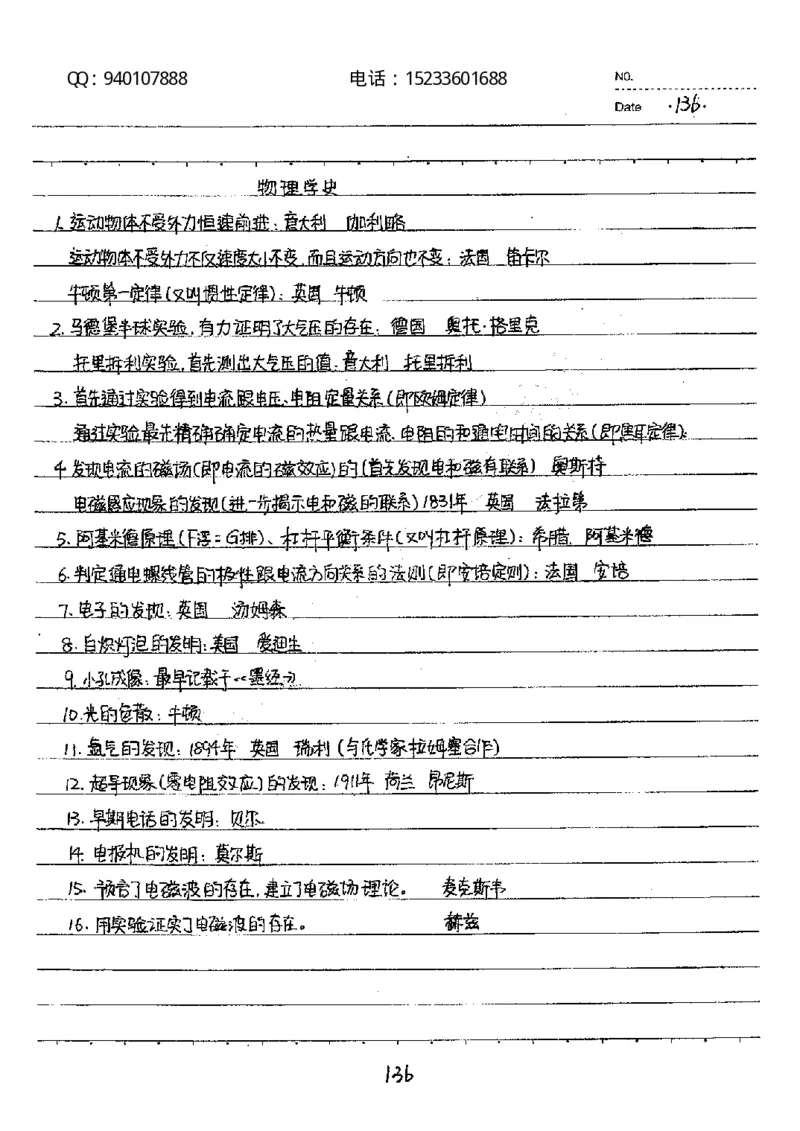 QQ：940107888 电话：15233601688 NO.
Date ·136·
物理学史
1.运动物体不受外力恒速前进：意大利 伽利略
运动物体不受外力不仅速度大小不变,而且运动方向也不变：法国 笛卡尔
牛顿第一定律(又叫惯性定律)：英国 牛顿
2.马德堡半球实验,有力证明了大气压的存在：德国 奥托·格里克
托里拆利实验,首先测出大气压的值：意大利 托里拆利
3.首先通过实验得到电流跟电压、电阻定量关系(即欧姆定律)
通过实验最先精确确定电流的热量跟电流、电阻的和通电时间的关系(即焦耳定律):
4发现电流的磁场(即电流的磁效应)的(首先发现电和磁有联系) 奥斯特
电磁感应现象的发现(进一步揭示电和磁的联系)1831年 英国 法拉第
5.阿基米德原理(F浮=G排)、杠杆平衡条件(又叫杠杆原理)：希腊. 阿基米德
6.判定通电螺线管的极性跟电流方向关系的法则(即安培定则)：法国 安培
7.电子的发现：英国 汤姆森
8.白炽灯泡的发明：美国 爱迪生
9.小孔成像：最早记载于《墨经》
10.光的色散：牛顿
11.氩气的发现：1894年 英国 瑞利(与化学家拉姆塞合作)
12.超导现象(零电阻效应)的发现：1911年 荷兰 昂尼斯
13.早期电话的发明：贝尔
14.电报机的发明：莫尔斯
15.预言了电磁波的存在,建立了电磁场理论。 麦克斯韦
16.用实验证实了电磁波的存在。 赫兹
136